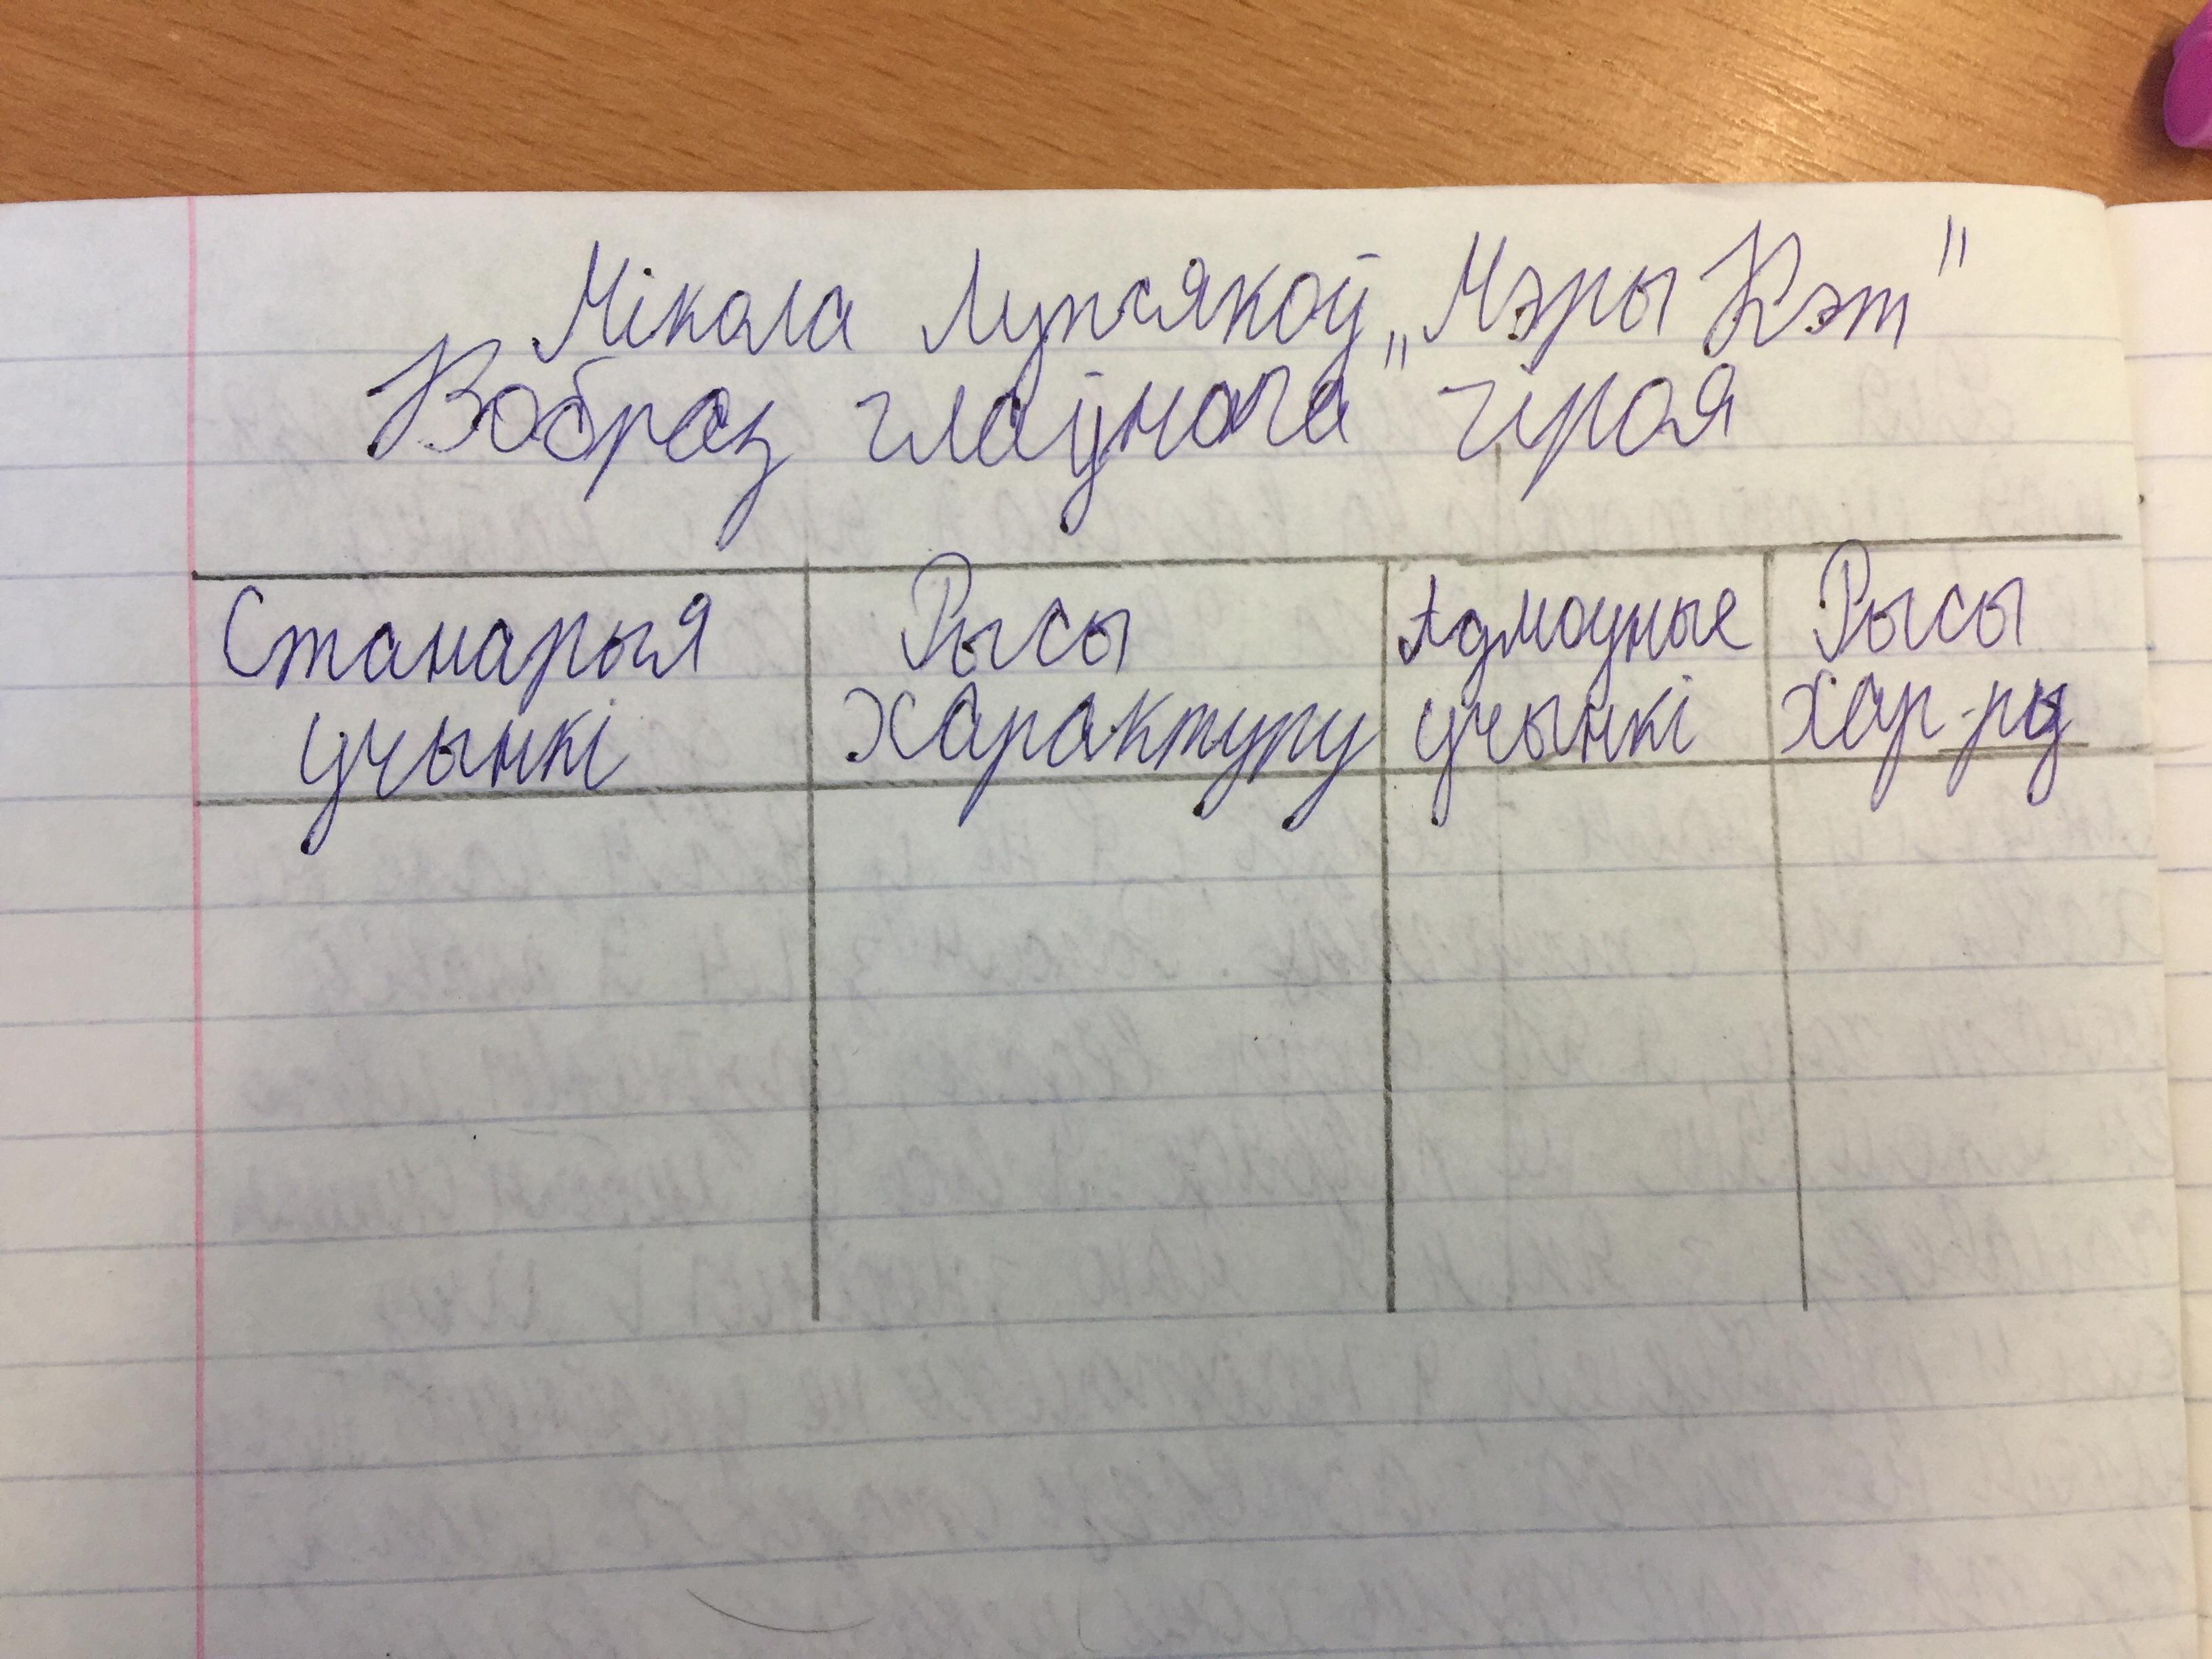 Мікола Лупсякоў „Мэры Кэт"
Вобраз глаўнага гіроя
Станарыя учынкі
Рысы характуру
Адмоуные учынкі
Рысы хар-ру